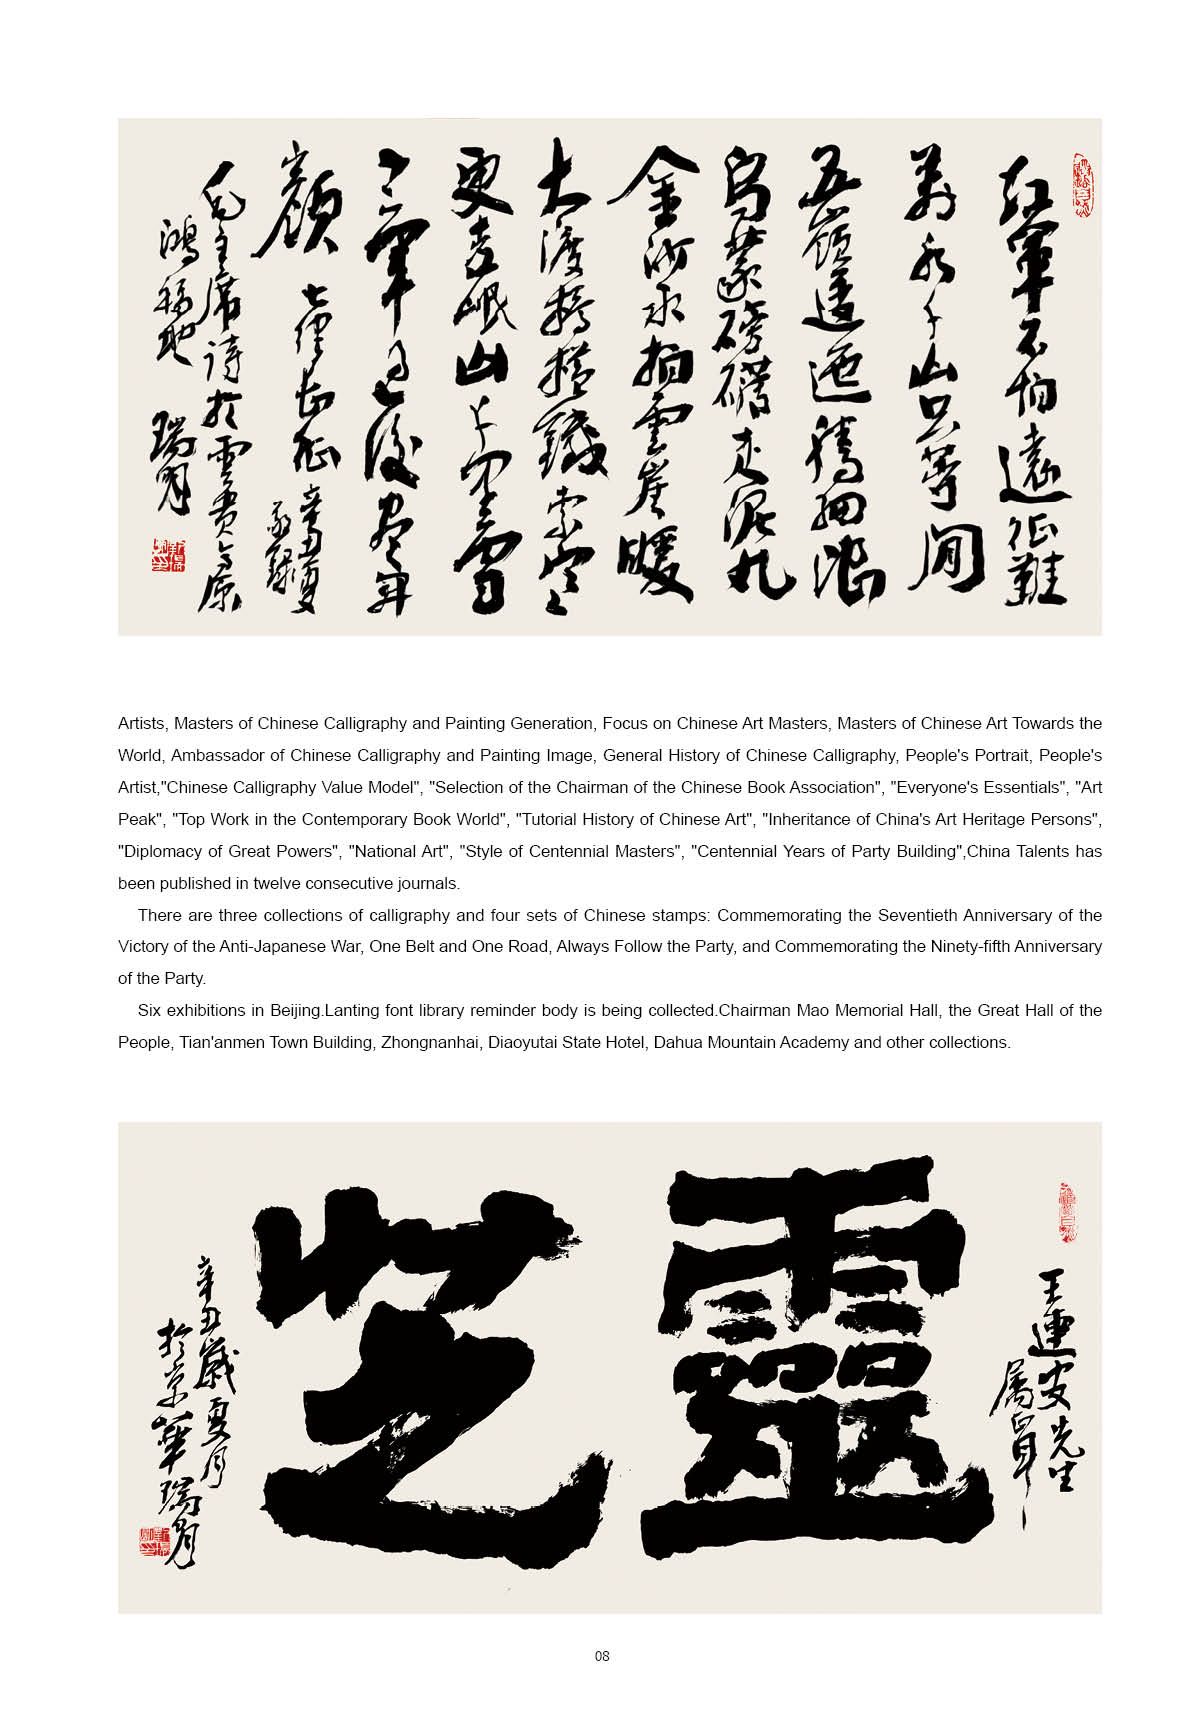 紅軍不怕遠征難
萬水千山只等閒
五嶺逶迤騰細浪
烏蒙磅礴走泥丸
金沙水拍雲崖暖
大渡橋橫鐵索寒
更喜岷山千里雪
三軍過後盡開
顏 七律長征 辛丑夏
敬錄
毛主席詩於雲貴高原
鴻福地 瑞
Artists, Masters of Chinese Calligraphy and Painting Generation, Focus on Chinese Art Masters, Masters of Chinese Art Towards the
World, Ambassador of Chinese Calligraphy and Painting Image, General History of Chinese Calligraphy, People's Portrait, People's
Artist,"Chinese Calligraphy Value Model", "Selection of the Chairman of the Chinese Book Association", "Everyone's Essentials", "Art
Peak", "Top Work in the Contemporary Book World", "Tutorial History of Chinese Art", "Inheritance of China's Art Heritage Persons",
"Diplomacy of Great Powers", "National Art", "Style of Centennial Masters", "Centennial Years of Party Building",China Talents has
been published in twelve consecutive journals.
There are three collections of calligraphy and four sets of Chinese stamps: Commemorating the Seventieth Anniversary of the
Victory of the Anti-Japanese War, One Belt and One Road, Always Follow the Party, and Commemorating the Ninety-fifth Anniversary
of the Party.
Six exhibitions in Beijing.Lanting font library reminder body is being collected.Chairman Mao Memorial Hall, the Great Hall of the
People, Tian'anmen Town Building, Zhongnanhai, Diaoyutai State Hotel, Dahua Mountain Academy and other collections.
王連安先生
屬
靈芝
辛丑歲夏月
於京華瑞
08